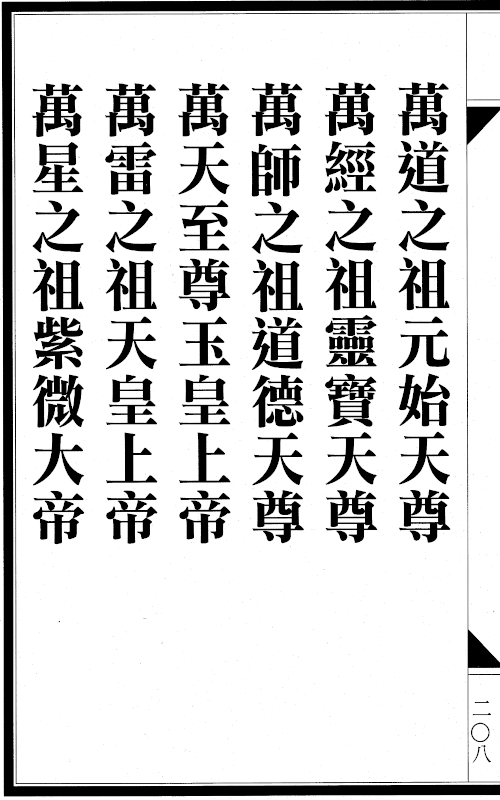 萬道之祖元始天尊
萬經之祖靈寶天尊
萬師之祖道德天尊
萬天至尊玉皇上帝
萬雷之祖天皇上帝
萬星之祖紫微大帝
二〇八